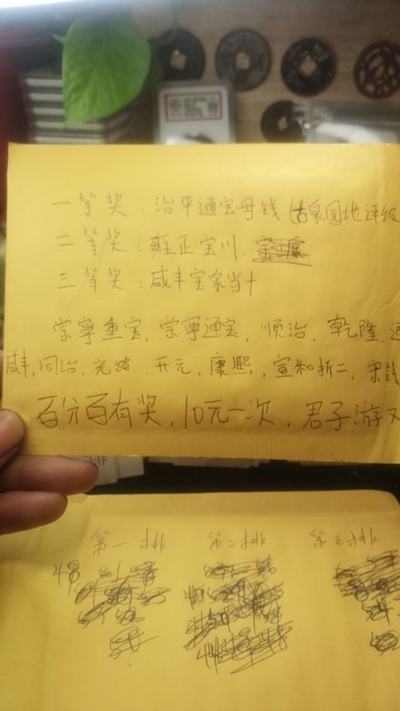 一等奖：治平通宝母钱（古泉园地评级
二等奖：雍正宝川
三等奖：咸丰宝泉当十
崇宁重宝，崇宁通宝，顺治，乾隆，道
咸丰，同治，光绪，开元，康熙，宣和折二，宋钱
百分百有奖，10元一次，君子游
第一排 第二排 第三排
48